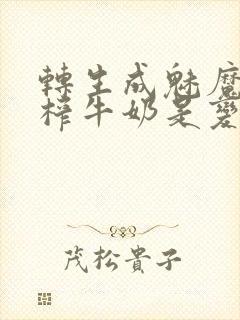 轉生成魅魔
榨牛奶是變
茂松貴子